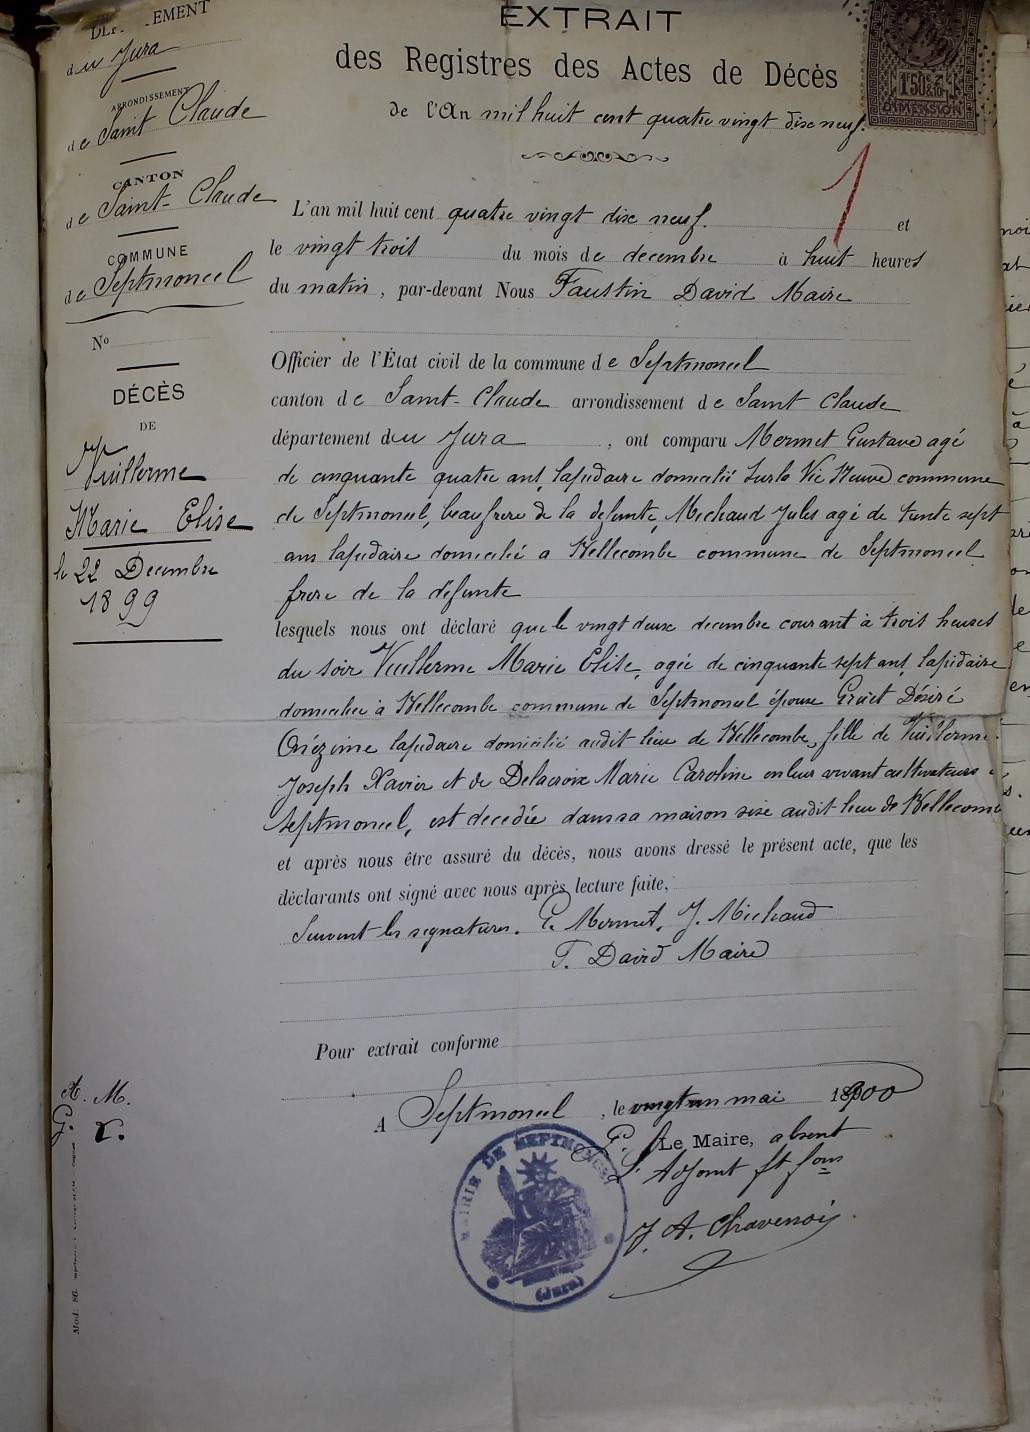 EXTRAIT
des Registres des Actes de Décès
de l'An mil huit cent quatre vingt dix neuf.
1F50&
DIMENSION
1
EMENT
du Jura
ARRONDISSEMENT
de Saint Claude
CANTON
de Saint-Claude
COMMUNE
de Septmoncel
No
DÉCÈS
DE
Vuillerme
Marie Elise
le 22 Decembre
1899
L'an mil huit cent quatre vingt dix neuf. et
le vingt trois du mois de decembre à huit heures
du matin, par-devant Nous Faustin David Maire
Officier de l'État civil de la commune de Septmoncel
canton de Saint-Claude arrondissement de Saint Claude
département du Jura, ont comparu Mermet Gustave agé
de cinquante quatre ans, lapidaire domicilié sur la Vie Neuve commune
de Septmoncel, beau frere de la defunte, Michaud Jules agé de trente sept
ans lapidaire domicilié a Vellecombe commune de Septmoncel
frere de la défunte
lesquels nous ont déclaré que le vingt deux decembre courant à trois heures
du soir Vuillerme Marie Elise, agée de cinquante sept ans, lapidaire
domiciliée à Vellecombe commune de Septmoncel épouse Gruet Désiré
Onézime lapidaire domicilié audit lieu de Vellecombe, fille de Vuillerme
Joseph Xavier et de Delacroix Marie Caroline en leur vivant cultivateurs à
Septmoncel, est decedée dans sa maison sise audit lieu de Vellecombe
et après nous être assuré du décès, nous avons dressé le présent acte, que les
déclarants ont signé avec nous après lecture faite,
Suivent les signatures. G. Mermet, J. Michaud
F. David Maire
Pour extrait conforme
A Septmoncel, le vingt un mai 1900
P. Le Maire, absent
L'Adjoint ft fons
J. A. Chavenois
MAIRIE DE SEPTMONCEL
(Jura)
A. M.
G. r.
Mod. 86.